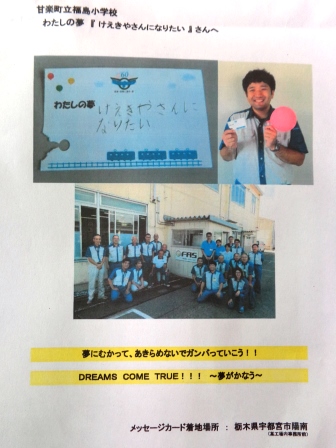 甘楽町立福島小学校
わたしの夢 『 けえきやさんになりたい 』 さんへ
わたしの夢
けえきやさんに
なりたい
FAS
夢にむかって、あきらめないでガンバっていこう！！
DREAMS COME TRUE！！！ ～夢がかなう～
メッセージカード着地場所 ： 栃木県宇都宮市陽南